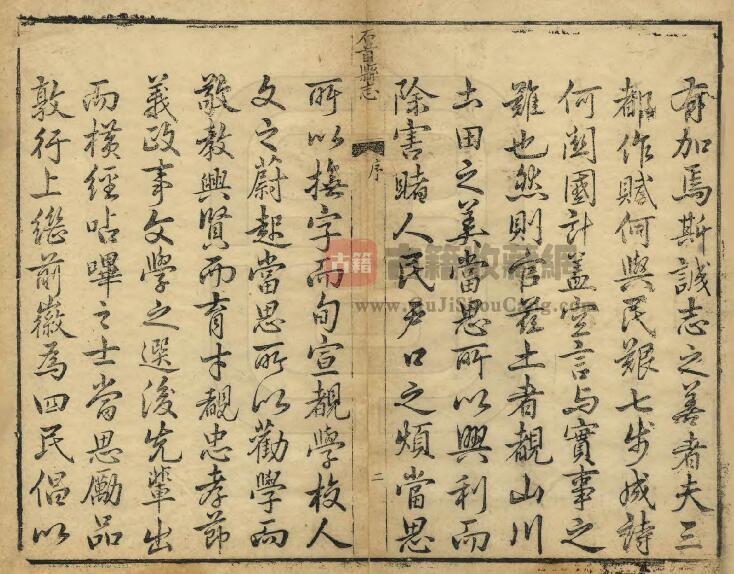 有加焉斯誠志之善者夫三
都作賦何與民艱七步成詩
何關國計蓋空言与實事之
難也然則官茲土者覩山川
土田之美當思所以興利而
除害睹人民戶口之煩當思
石首縣志
序
二
所以撫字而旬宣覩學校人
文之蔚起當思所以勸學而
敬敎興賢而育才覩忠孝節
義政事文學之選後先輩出
而橫經呫嗶之士當思勵品
敦行上繼前徽為四民倡以
古籍
古籍收藏網
www.GuJiShouCang.com